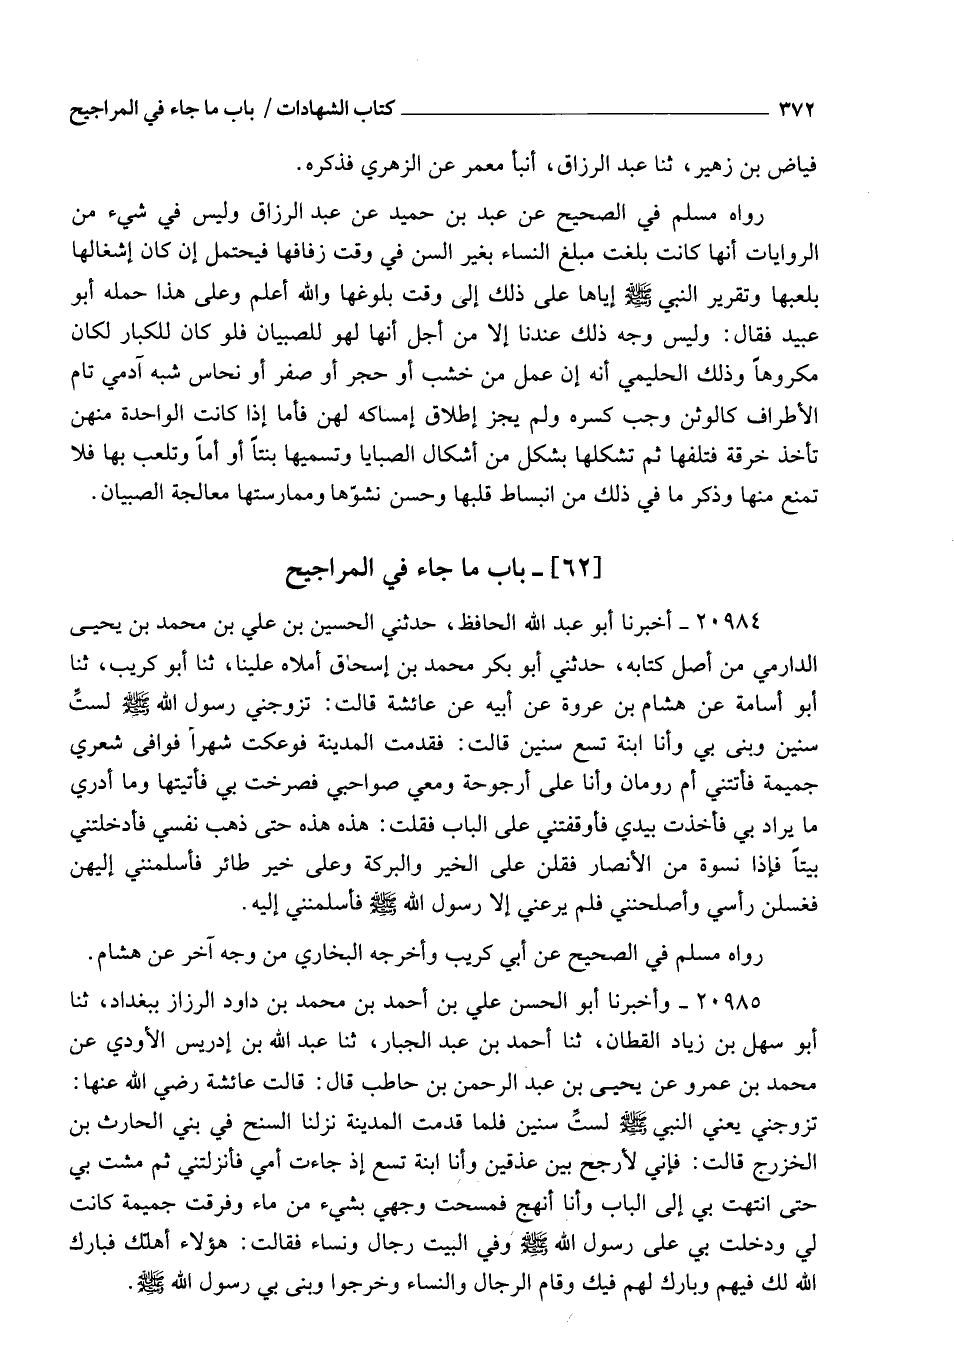 ٣٧٢ كتاب الشهادات / باب ما جاء في المراجيح
فياض بن زهير، ثنا عبد الرزاق، أنبأ معمر عن الزهري فذكره.
رواه مسلم في الصحيح عن عبد بن حميد عن عبد الرزاق وليس في شيء من
الروايات أنها كانت بلغت مبلغ النساء بغير السن في وقت زفافها فيحتمل إن كان إشغالها
بلعبها وتقرير النبي ﷺ إياها على ذلك إلى وقت بلوغها والله أعلم وعلى هذا حمله أبو
عبيد فقال: وليس وجه ذلك عندنا إلا من أجل أنها لهو للصبيان فلو كان للكبار لكان
مكروهاً وذلك الحليمي أنه إن عمل من خشب أو حجر أو صفر أو نحاس شبه آدمي تام
الأطراف كالوثن وجب كسره ولم يجز إطلاق إمساكه لهن فأما إذا كانت الواحدة منهن
تأخذ خرقة فتلفها ثم تشكلها بشكل من أشكال الصبايا وتسميها بنتاً أو أماً وتلعب بها فلا
تمنع منها وذكر ما في ذلك من انبساط قلبها وحسن نشوّها وممارستها معالجة الصبيان.
[٦٢] ـ باب ما جاء في المراجيح
٢٠٩٨٤ ـ أخبرنا أبو عبد الله الحافظ، حدثني الحسين بن علي بن محمد بن يحيى
الدارمي من أصل كتابه، حدثني أبو بكر محمد بن إسحاق أملاه علينا، ثنا أبو كريب، ثنا
أبو أسامة عن هشام بن عروة عن أبيه عن عائشة قالت: تزوجني رسول الله ﷺ لستِّ
سنين وبنى بي وأنا ابنة تسع سنين قالت: فقدمت المدينة فوعكت شهراً فوافى شعري
جميمة فأتتني أم رومان وأنا على أرجوحة ومعي صواحبي فصرخت بي فأتيتها وما أدري
ما يراد بي فأخذت بيدي فأوقفتني على الباب فقلت: هذه هذه حتى ذهب نفسي فأدخلتني
بيتاً فإذا نسوة من الأنصار فقلن على الخير والبركة وعلى خير طائر فأسلمنني إليهن
فغسلن رأسي وأصلحنني فلم يرعني إلا رسول الله ﷺ فأسلمنني إليه.
رواه مسلم في الصحيح عن أبي كريب وأخرجه البخاري من وجه آخر عن هشام.
٢٠٩٨٥ ـ وأخبرنا أبو الحسن علي بن أحمد بن محمد بن داود الرزاز ببغداد، ثنا
أبو سهل بن زياد القطان، ثنا أحمد بن عبد الجبار، ثنا عبد الله بن إدريس الأودي عن
محمد بن عمرو عن يحيى بن عبد الرحمن بن حاطب قال: قالت عائشة رضي الله عنها:
تزوجني يعني النبي ﷺ لستِّ سنين فلما قدمت المدينة نزلنا السنح في بني الحارث بن
الخزرج قالت: فإني لأرجح بين عذقين وأنا ابنة تسع إذ جاءت أمي فأنزلتني ثم مشت بي
حتى انتهت بي إلى الباب وأنا أنهج فمسحت وجهي بشيء من ماء وفرقت جميمة كانت
لي ودخلت بي على رسول الله ﷺ وفي البيت رجال ونساء فقالت: هؤلاء أهلك فبارك
الله لك فيهم وبارك لهم فيك وقام الرجال والنساء وخرجوا وبنى بي رسول الله ﷺ.